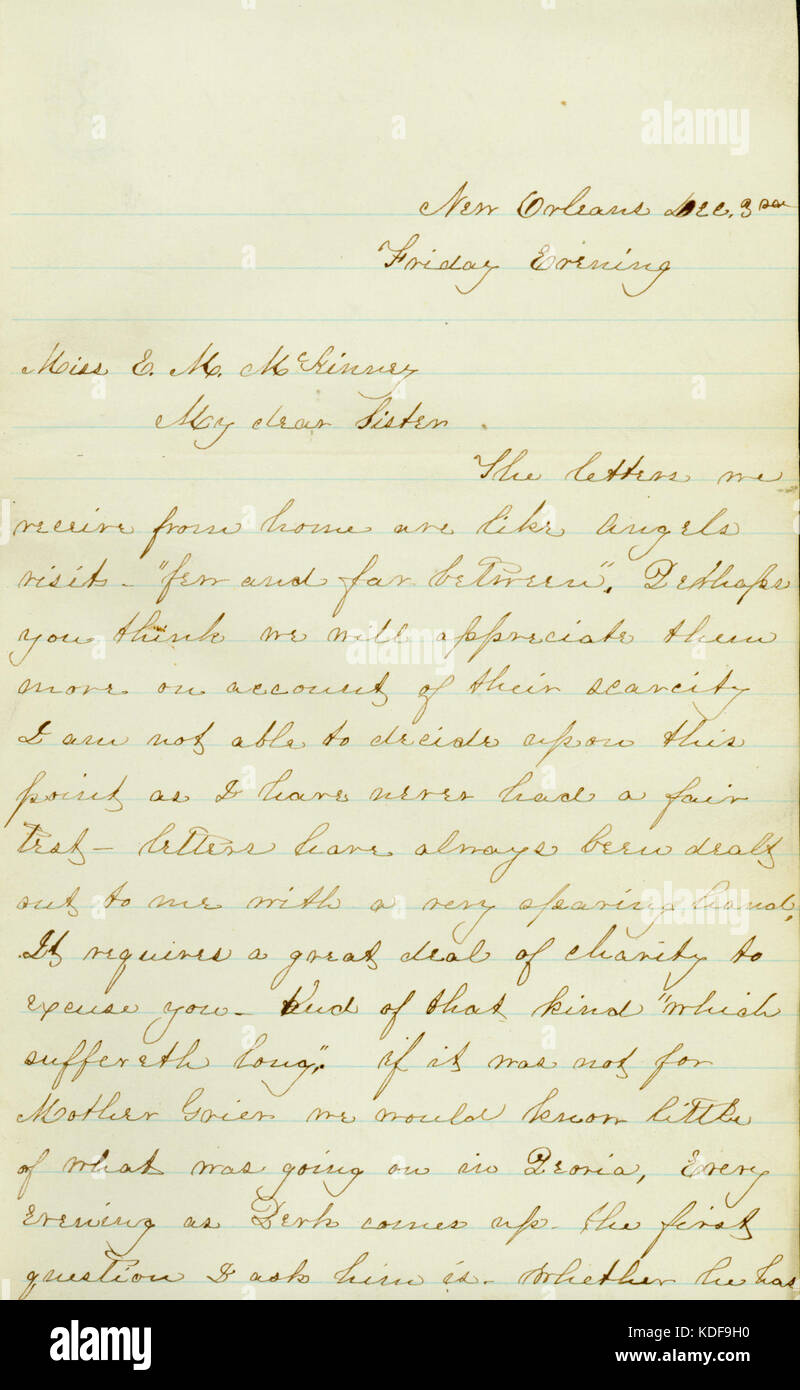 New Orleans Dec. 3
Friday Evening
Miss E. M. McKinney
My dear Sister.
The letters we
receive from home are like Angels
visit - "few and far between". Perhaps
you think we will appreciate them
more on account of their scarcity
I am not able to decide upon this
point as I have never had a fair
test - letters have always been dealt
out to me with a very sparing hand,
It requires a great deal of charity to
excuse you - And of that kind "which
suffereth long", if it was not for
Mother Grier we would know little
of what was going on in Peoria, Every
Evening as Perk comes up - the first
question I ask him is - whether he has
alamy
alamy
Image ID: KDF9H0
www.alamy.com